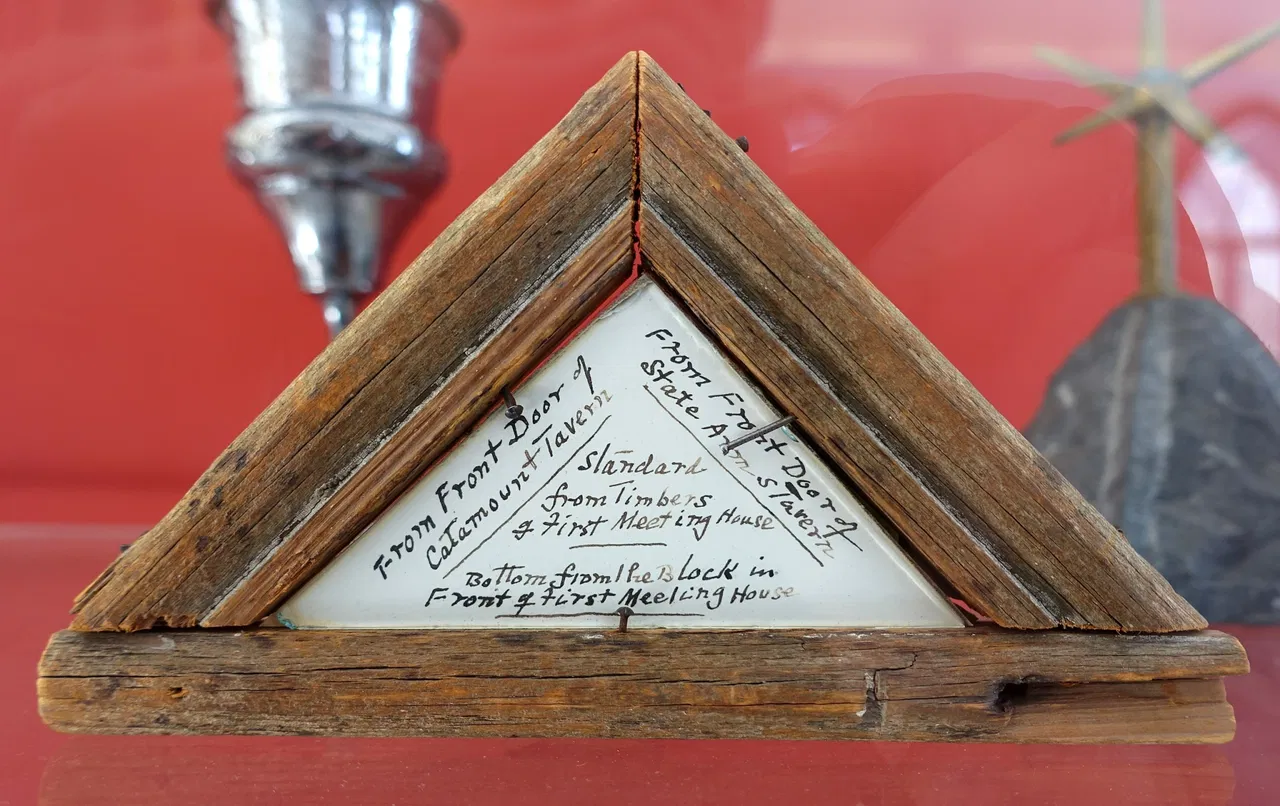 From Front Door of
Catamount Tavern
From Front Door of
State Arms Tavern
Standard
from Timbers
of First Meeting House
Bottom from the Block in
Front of First Meeting House